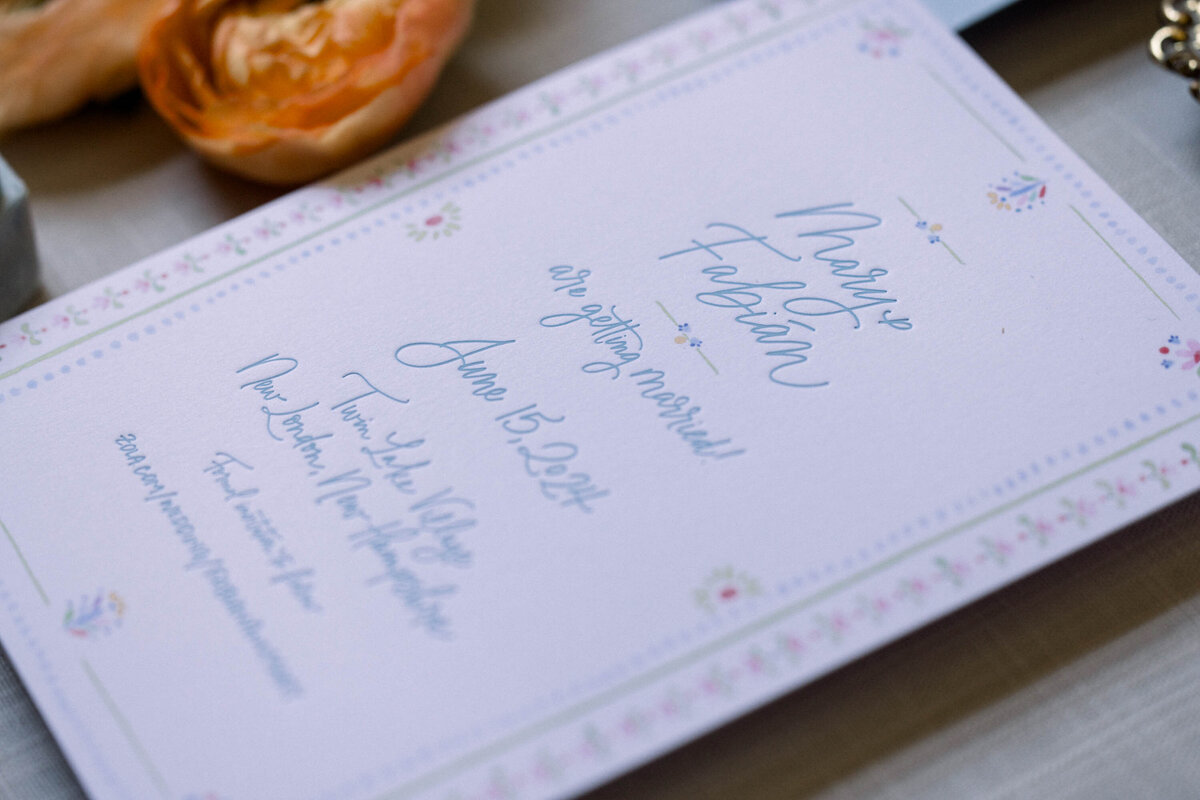 Mary &
Fabián
are getting married!
June 15, 2024
Twin Lake Village
New London, New Hampshire
Formal invitation to follow